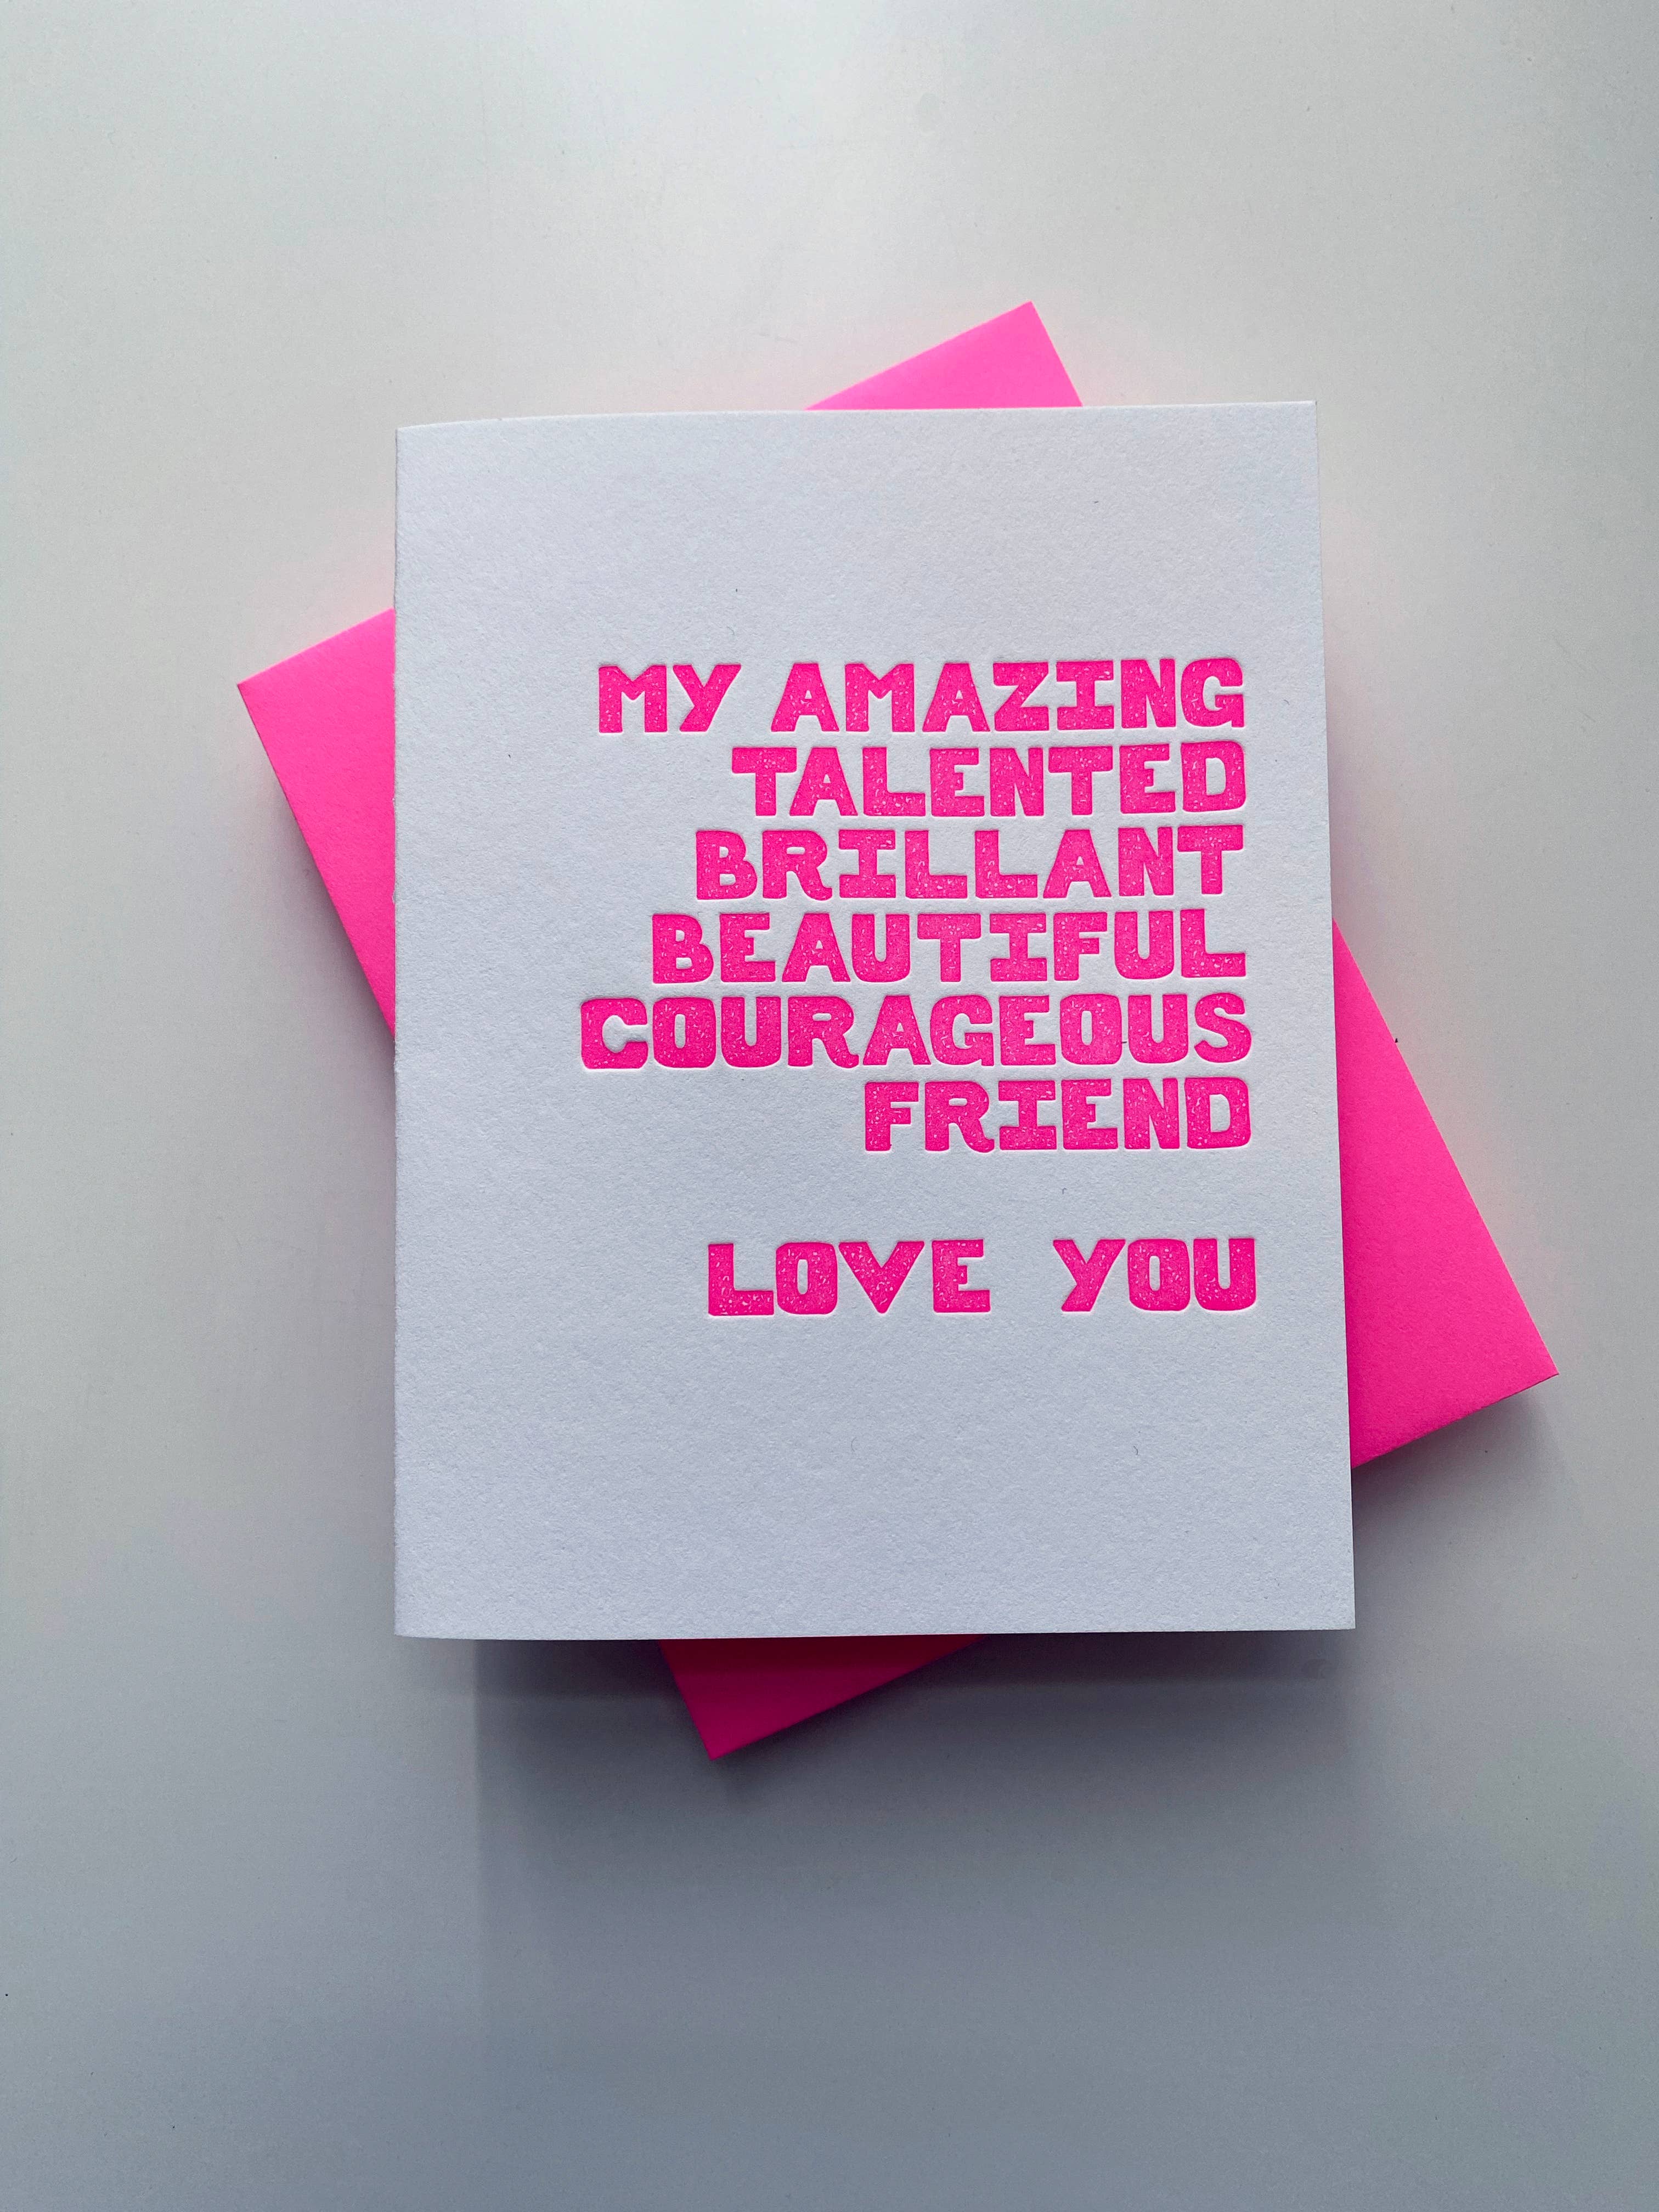 MY AMAZING
TALENTED
BRILLANT
BEAUTIFUL
COURAGEOUS
FRIEND
LOVE YOU